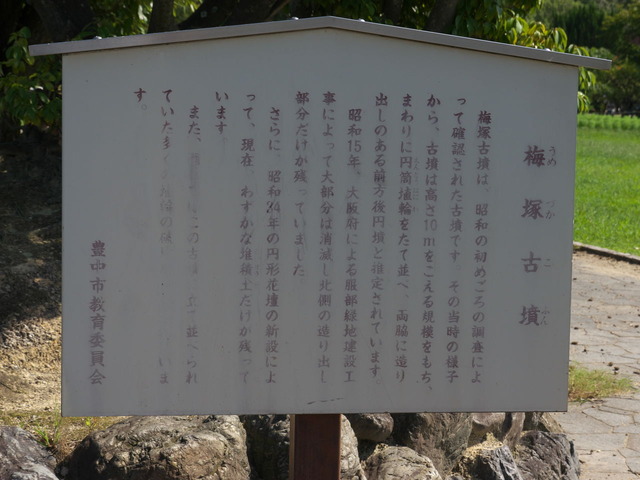 梅塚古墳
うめづかこふん
梅塚古墳は、昭和の初めごろの調査によ
って確認された古墳です。その当時の様子
から、古墳は高さ10mをこえる規模をもち、
まわりに円筒埴輪をたて並べ、両脇に造り
出しのある前方後円墳と推定されています。
昭和15年、大阪府による服部緑地建設工
事によって大部分は消滅し北側の造り出し
部分だけが残っていました。
さらに、昭和34年の円形花壇の新設によ
って、現在、わずかな堆積土だけが残って
います。
また、この古墳に立て並べられ
ていた多くの埴輪の破いま
す。
豊中市教育委員会